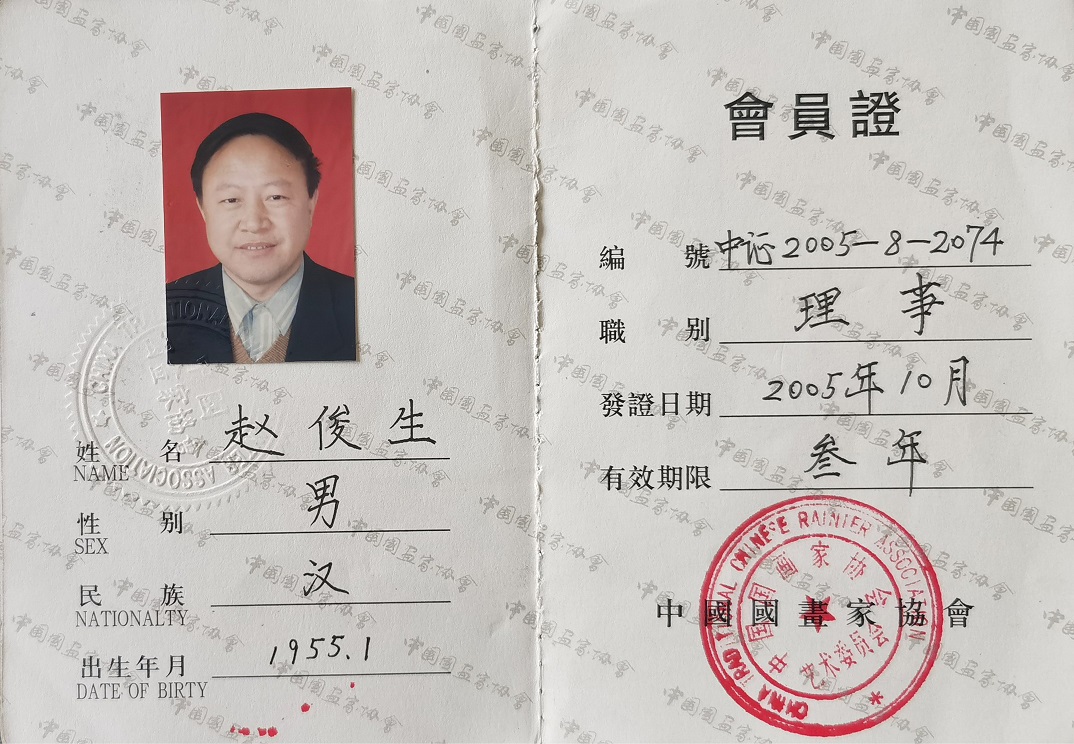 姓名 赵俊生
NAME
性别 男
SEX
民族 汉
NATIONALTY
出生年月 1955.1
DATE OF BIRTY
ASSOCIATION
會員證
編號 中证2005-8-2074
職别 理事
發證日期 2005年10月
有效期限 叁年
中國國畫家協會
CHINA TRADITIONAL CHINESE RAINTER ASSOCIATAIN
中国国画家协会
艺术委员会
中國國畫家协會